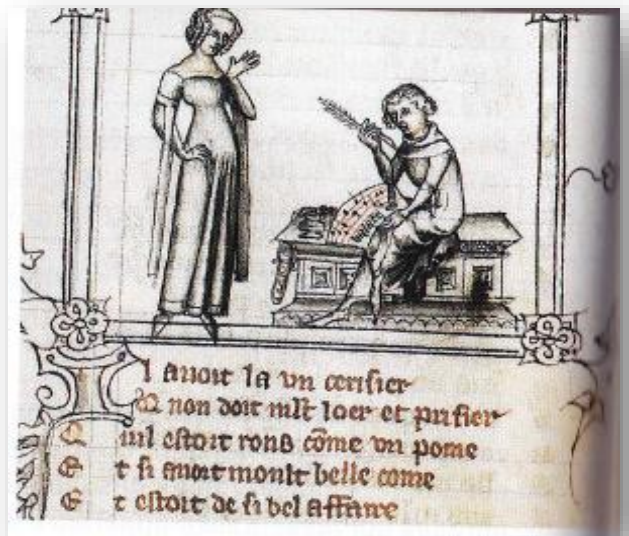 I l avoit la vn cerisier
Q non doit mlt loer et prisier
Q uil estoit rons cõme vn pome
E t si auoit moult belle come
E t estoit de si bel affaire